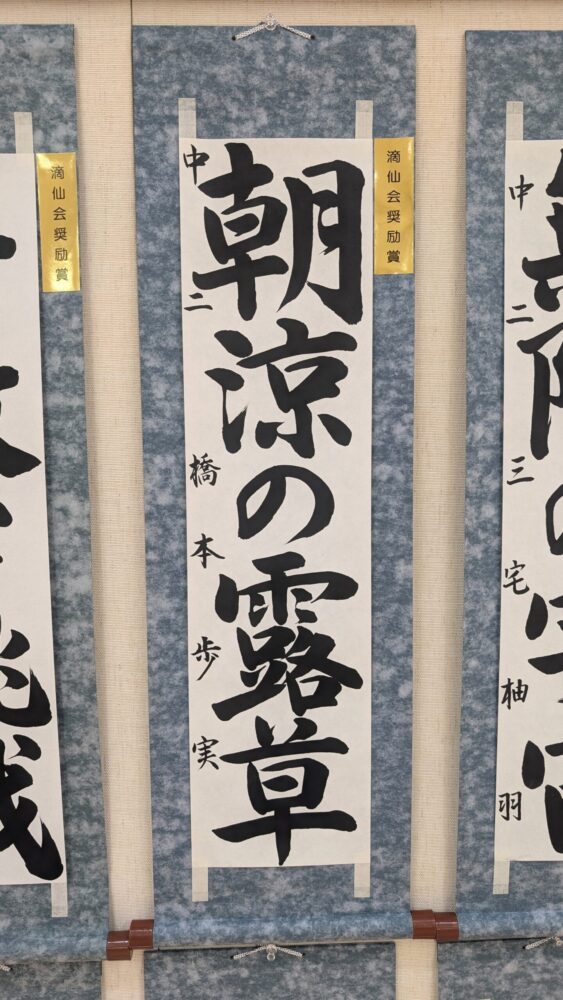 滴仙会奨励賞
朝涼の露草
中二 橋本歩実
滴仙会奨励賞
中二 三宅柚羽